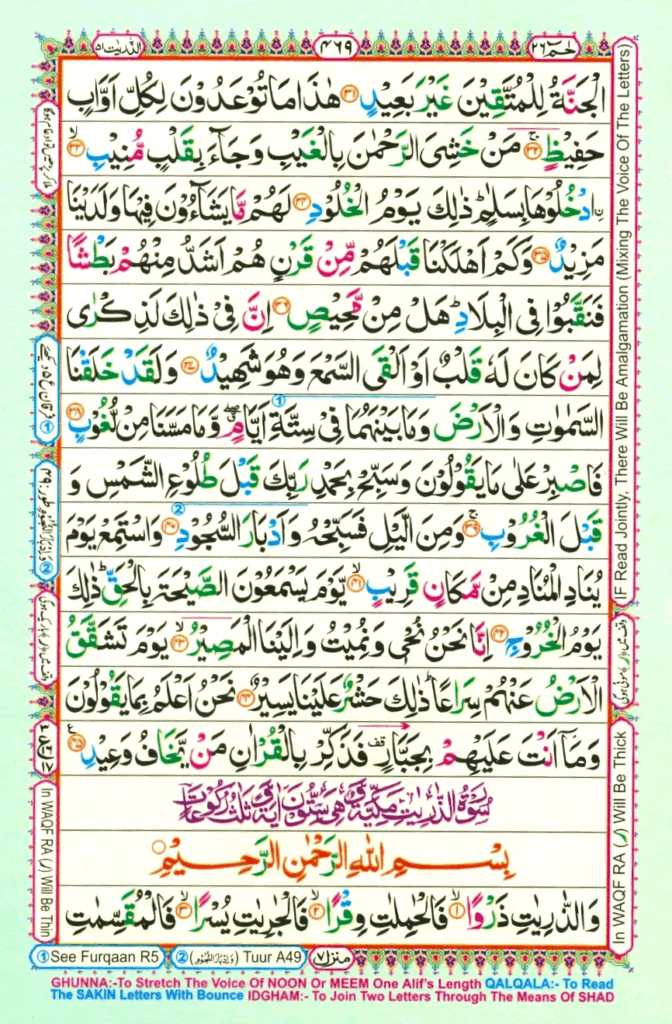 الذّٰرِيٰت ٥١
٤٦٩
حٰمٓ ٢٦
الْجَنَّةُ لِلْمُتَّقِيْنَ غَيْرَ بَعِيْدٍ ﴿٣١﴾ هٰذَا مَا تُوْعَدُوْنَ لِكُلِّ اَوَّابٍ
حَفِيْظٍ ﴿٣٢﴾ۚ مَنْ خَشِىَ الرَّحْمٰنَ بِالْغَيْبِ وَجَآءَ بِقَلْبٍ مُّنِيْبِ ﴿٣٣﴾ۙ
ۨادْخُلُوْهَا بِسَلٰمٍؕ ذٰلِكَ يَوْمُ الْخُلُوْدِ ﴿٣٤﴾ لَهُمْ مَّا يَشَآءُوْنَ فِيْهَا وَلَدَيْنَا
مَزِيْدٌ ﴿٣٥﴾ وَكَمْ اَهْلَكْنَا قَبْلَهُمْ مِّنْ قَرْنٍ هُمْ اَشَدُّ مِنْهُمْ بَطْشًا
فَنَقَّبُوْا فِى الْبِلَادِؕ هَلْ مِنْ مَّحِيْصٍ ﴿٣٦﴾ اِنَّ فِىْ ذٰلِكَ لَذِكْرٰى
لِمَنْ كَانَ لَهٗ قَلْبٌ اَوْ اَلْقَى السَّمْعَ وَهُوَ شَهِيْدٌ ﴿٣٧﴾ وَلَقَدْ خَلَقْنَا
السَّمٰوٰتِ وَالْاَرْضَ وَمَا بَيْنَهُمَا فِىْ سِتَّةِ اَيَّامٍ وَّمَا مَسَّنَا مِنْ لُّغُوْبٍ ﴿٣٨﴾
فَاصْبِرْ عَلٰى مَا يَقُوْلُوْنَ وَسَبِّحْ بِحَمْدِ رَبِّكَ قَبْلَ طُلُوْعِ الشَّمْسِ وَ
قَبْلَ الْغُرُوْبِ ﴿٣٩﴾ۚ وَمِنَ الَّيْلِ فَسَبِّحْهُ وَاَدْبَارَ السُّجُوْدِ ﴿٤٠﴾ وَاسْتَمِعْ يَوْمَ
يُنَادِ الْمُنَادِ مِنْ مَّكَانٍ قَرِيْبٍ ﴿٤١﴾ۙ يَّوْمَ يَسْمَعُوْنَ الصَّيْحَةَ بِالْحَقِّؕ ذٰلِكَ
يَوْمُ الْخُرُوْجِ ﴿٤٢﴾ اِنَّا نَحْنُ نُحْىٖ وَنُمِيْتُ وَاِلَيْنَا الْمَصِيْرُ ﴿٤٣﴾ۙ يَوْمَ تَشَقَّقُ
الْاَرْضُ عَنْهُمْ سِرَاعًاؕ ذٰلِكَ حَشْرٌ عَلَيْنَا يَسِيْرٌ ﴿٤٤﴾ نَحْنُ اَعْلَمُ بِمَا يَقُوْلُوْنَ
وَمَاۤ اَنْتَ عَلَيْهِمْ بِجَبَّارٍ قف فَذَكِّرْ بِالْقُرْاٰنِ مَنْ يَّخَافُ وَعِيْدِ ﴿٤٥﴾
سُوْرَةُ الذّٰرِيٰتِ مَكِّيَّةٌ وَّهِىَ سِتُّوْنَ اٰيَةً وَّثَلٰثُ رُكُوْعَاتٍ
بِسْمِ اللهِ الرَّحْمٰنِ الرَّحِيْمِ
وَالذّٰرِيٰتِ ذَرْوًا ﴿١﴾ۙ فَالْحٰمِلٰتِ وِقْرًا ﴿٢﴾ۙ فَالْجٰرِيٰتِ يُسْرًا ﴿٣﴾ۙ فَالْمُقَسِّمٰتِ
IF Read Jointly, There Will Be Amalgamation (Mixing The Voice Of The Letters)
In WAQF RA (ر) Will Be Thick
In WAQF RA (ر) Will Be Thin
① See Furqaan R5
② (وَاِدْبَارَ النُّجُوْمِ) Tuur A49
منزل ٧
GHUNNA:-To Stretch The Voice Of NOON Or MEEM One Alif's Length QALQALA:- To Read
The SAKIN Letters With Bounce IDGHAM:- To Join Two Letters Through The Means Of SHAD